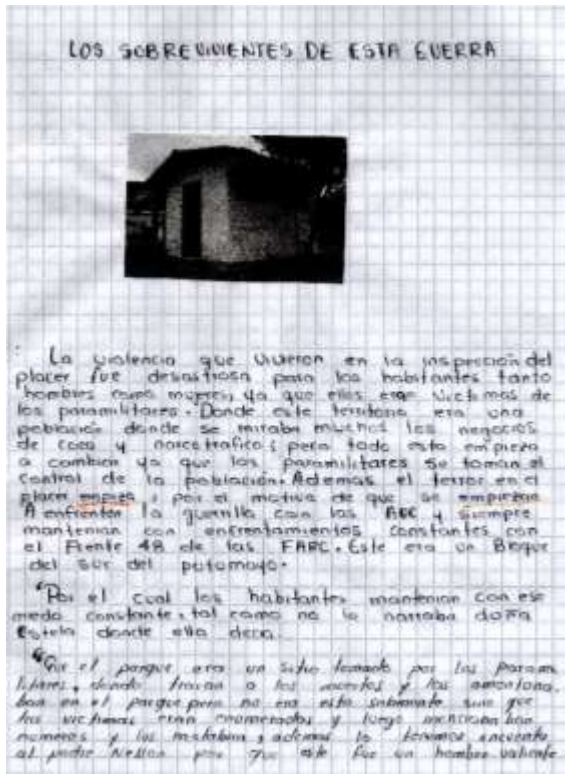 LOS SOBREVIVIENTES DE ESTA GUERRA
La violencia que vivieron en la inspección del
placer fue desastrosa para los habitantes tanto
hombres como mujeres, ya que ellos eran victimas de
los paramilitares. Donde este territorio era una
población donde se miraba muchos los negocios
de coca y narcotrafico; pero todo esto empieza
a cambiar ya que los paramilitares se toman el
control de la población. Ademas el terror en el
placer empieza, por el motivo de que se empiezan
A enfrentar la guerrilla con las AUC y siempre
mantenian con enfrentamientos constantes con
el Frente 48 de las FARC. Este era un Bloque
del sur del putumayo.
"Por el cual los habitantes mantenian con ese
miedo constante, tal como no lo narraba doña
Estela donde ella decia.
el parque era un sitio tomado por los param
litares, donde traian a los muertos y los amontona.
ban en el parque pero no era esto solamente sino que
las victimas eran enumerados y luego mencionaban
numeros y los mataban, ademas lo tenemos encuenta
al padre Nelson por que este fue un hombre valiente